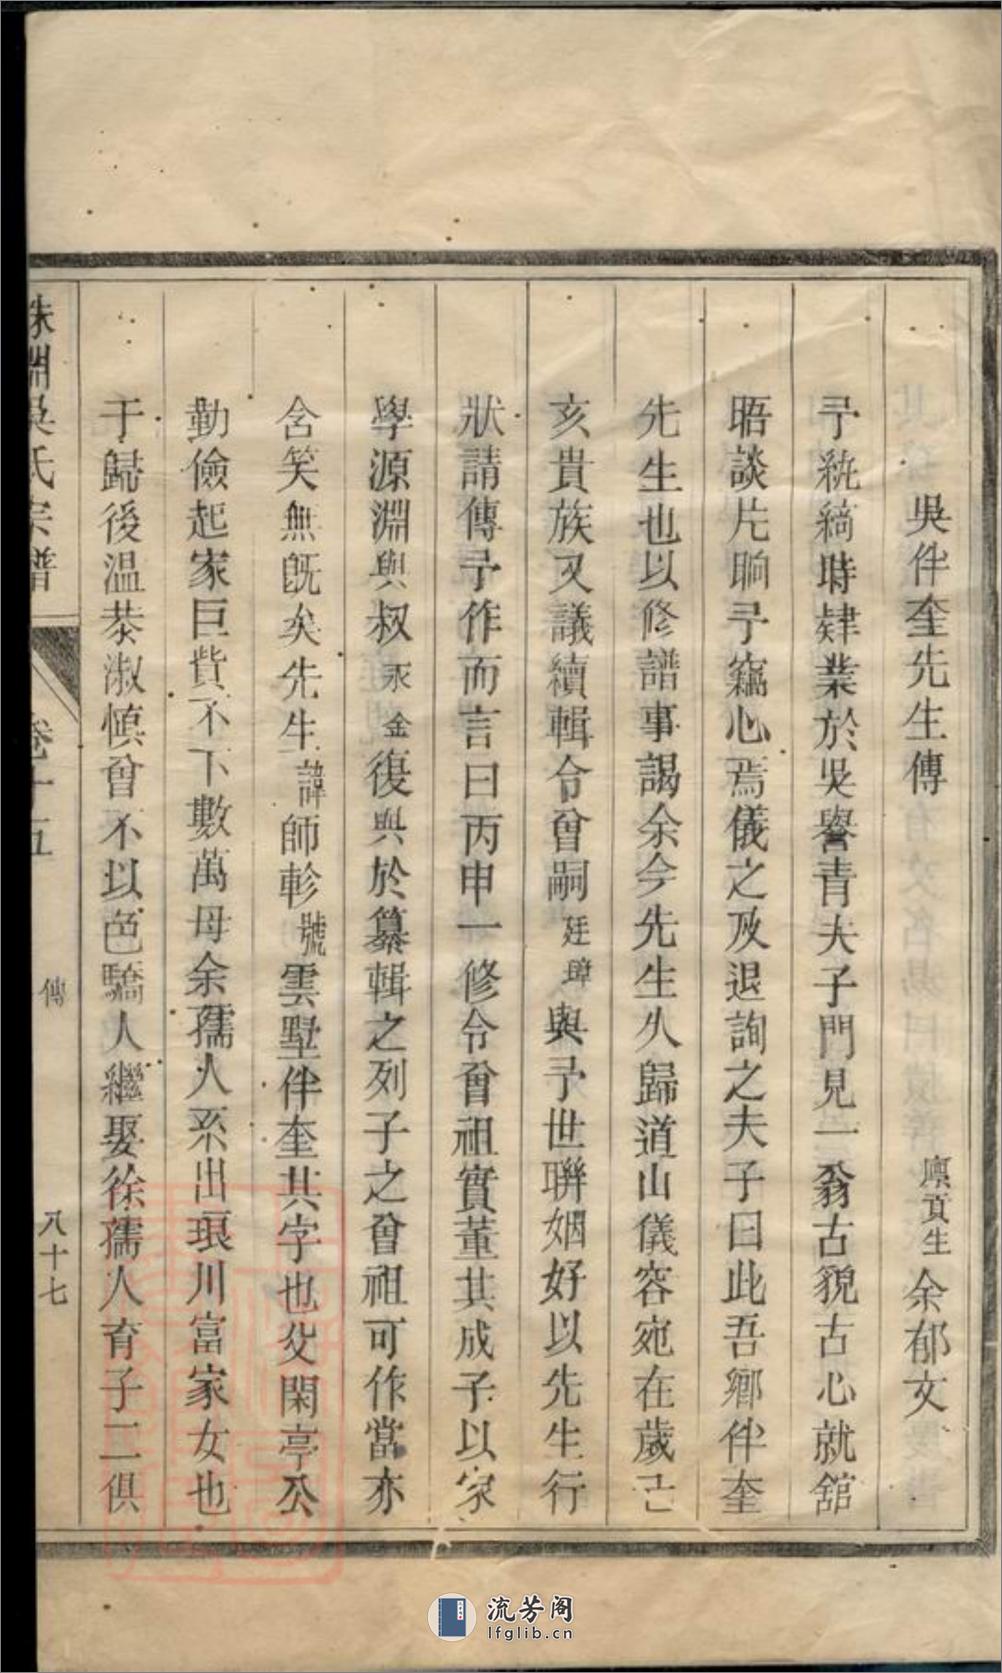 吳伴奎先生傳　廩貢生　余郁文
予紈縞時肄業於吳譽青夫子門見一翁古貌古心就舘
晤談片晌予竊心焉儀之及退詢之夫子曰此吾鄉伴奎
先生也以修譜事謁余今先生久歸道山儀容宛在歲己
亥貴族又議續輯令曾嗣廷暐與予世聯姻好以先生行
狀請傳予作而言曰丙申一修令曾祖實董其成子以家
學源淵與叔永金復與於纂輯之列子之曾祖可作當亦
含笑無旣矣先生諱師軫號雲墅伴奎其字也父閑亭公
勤儉起家巨貲不下數萬母余孺人系出琅川富家女也
于歸後溫恭淑慎曾不以色驕人繼娶徐孺人育子二俱
吳氏宗譜　卷十五　傳　八十七
流芳阁
lfglib.cn